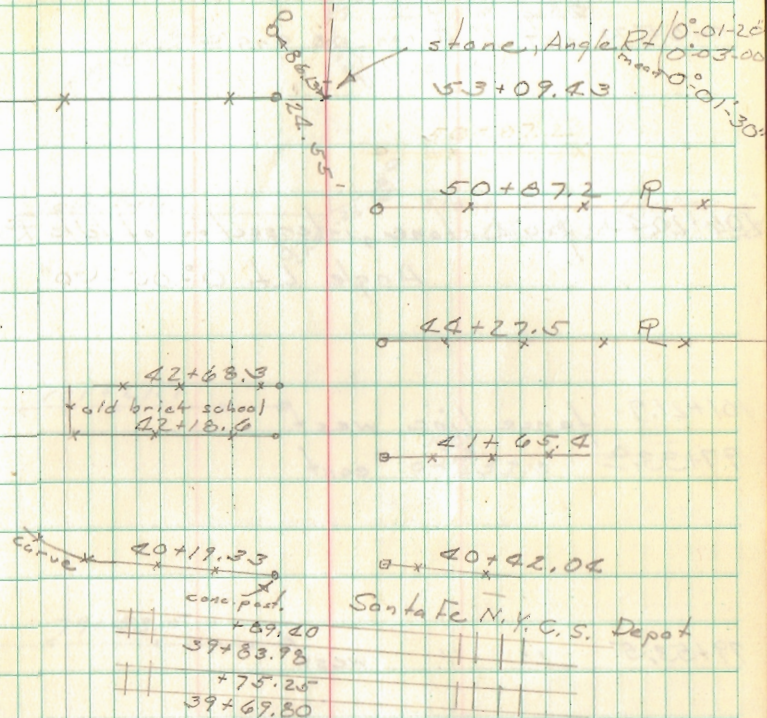 stone, Angle Rt 0°-01'-20
0°-03'-00
mean 0°-01'-30"
53+09.43
24.55
50+87.2 PL
44+27.5 PL
42+68.3
old brick school
42+18.6
41+65.4
curve 40+19.33
40+42.04
conc. post.
Santa Fe N.Y.C.S. Depot
+89.40
39+83.98
+75.25
39+69.80